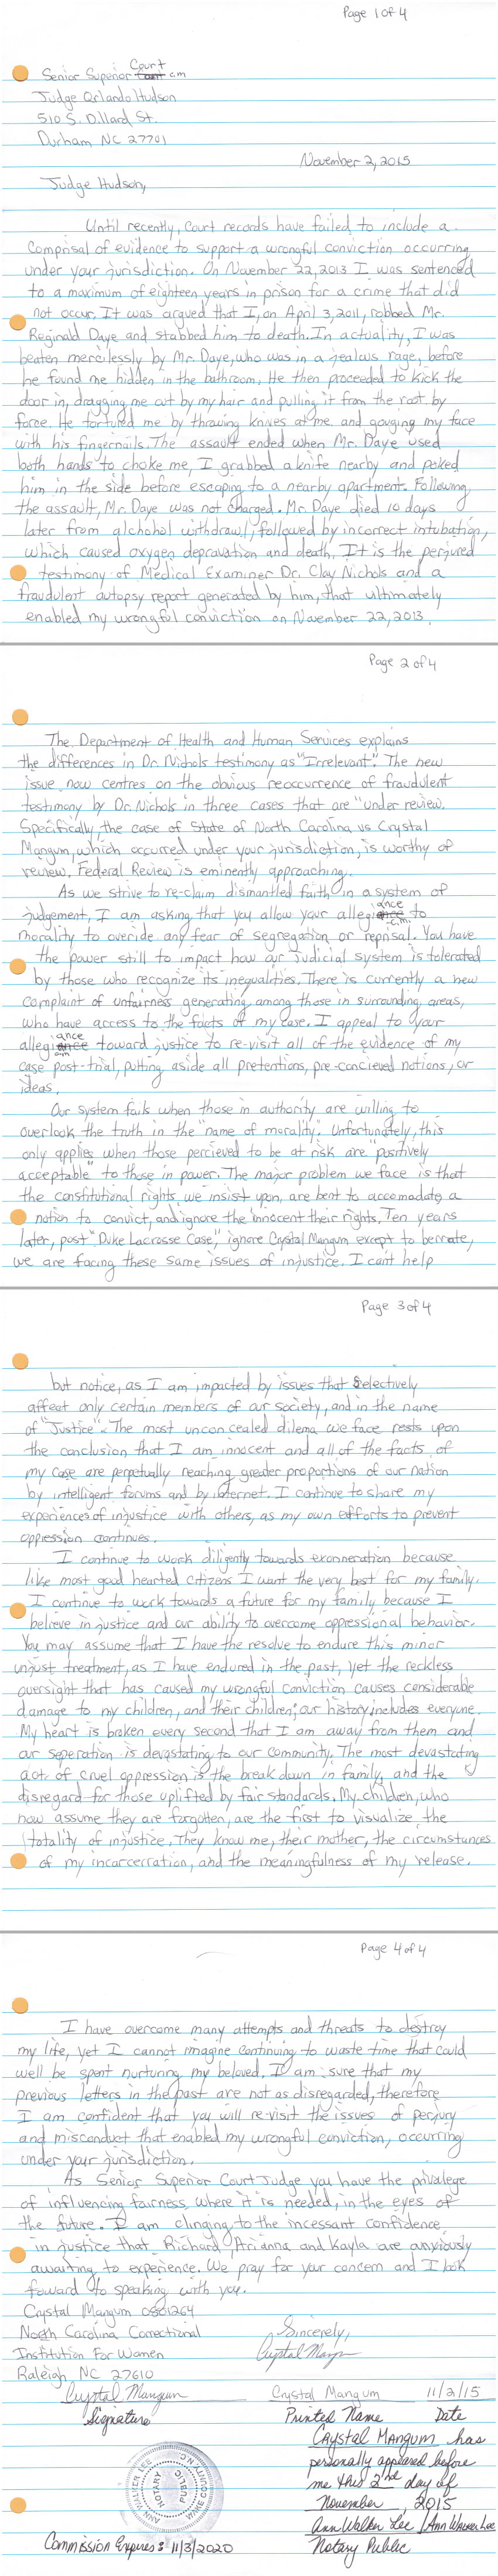 Page 1 of 4
Court
Senior Superior Court c.m
Judge Orlando Hudson
510 S. Dillard St.
Durham NC 27701
November 2, 2015
Judge Hudson,
Until recently, Court records have failed to include a
Comprisal of evidence to support a wrongful conviction occurring
under your jurisdiction. On November 22, 2013 I was sentenced
to a maximum of eighteen years in prison for a crime that did
not occur. It was argued that I, on April 3, 2011, robbed Mr.
Reginald Daye and stabbed him to death. In actuality, I was
beaten mercilessly by Mr. Daye, who was in a jealous rage, before
he found me hidden in the bathroom. He then proceeded to kick the
door in, dragging me out by my hair and pulling it from the root by
force. He tortured me by throwing knives at me and gouging my face
with his fingernails. The assault ended when Mr. Daye used
both hands to choke me, I grabbed a knife nearby and poked
him in the side before escaping to a nearby apartment. Following
the assault, Mr. Daye was not charged. Mr. Daye died 10 days
later from alchohol withdrawl, followed by incorrect intubation,
which caused oxygen depravation and death. It is the perjured
testimony of Medical Examiner Dr. Clay Nichols and a
fraudulent autopsy report generated by him, that ultimately
enabled my wrongful conviction on November 22, 2013.
Page 2 of 4
The Department of Health and Human Services explains
the differences in Dr. Nichols testimony as "Irrelevant". The new
issue now centres on the obvious reoccurrence of fraudulent
testimony by Dr. Nichols in three cases that are "under review.
Specifically, the case of State of North Carolina vs Crystal
Mangum, which occurred under your jurisdiction, is worthy of
review. Federal Review is eminently approaching.
As we strive to re-claim dismantled faith in a system of
judgement, I am asking that you allow your allegiance to
c.m.
morality to overide any fear of segregation or reprisal. You have
the power still to impact how our judicial system is tolerated
by those who recognize its inequalities. There is currently a new
complaint of unfairness generating among those in surrounding areas,
who have access to the facts of my case. I appeal to your
allegiance toward justice to re-visit all of the evidence of my
case post-trial, putting aside all pretentions, pre-concieved notions, or
ideas.
Our system fails when those in authority are willing to
overlook the truth in the "name of morality". Unfortunately, this
only applies when those percieved to be at risk are "positively
acceptable" to those in power. The major problem we face is that
the constitutional rights we insist upon, are bent to accomadate a
notion to convict, and ignore the innocent their rights. Ten years
later, post "Duke Lacrosse Case," ignore Crystal Mangum except to berrate,
we are facing these same issues of injustice. I cant help
Page 3 of 4
but notice, as I am impacted by issues that selectively
affect only certain members of our society, and in the name
of "Justice". The most unconcealed dilema we face rests upon
the conclusion that I am innocent and all of the facts of
my case are perpetually reaching greater proportions of our nation
by intelligent forums and by internet. I continue to share my
experiences of injustice with others, as my own efforts to prevent
oppression continues.
I continue to work diligently towards exonneration because
like most good hearted citizens I want the very best for my family.
I continue to work towards a future for my family because I
believe in justice and our ability to overcome oppressional behavior.
You may assume that I have the resolve to endure this minor
unjust treatment, as I have endured in the past, yet the reckless
oversight that has caused my wrongful conviction causes considerable
damage to my children, and their children; our history includes everyone.
My heart is broken every second that I am away from them and
our seperation is devastating to our community. The most devastating
act of cruel oppression is the break down in family, and the
disregard for those uplifted by fair standards. My children, who
now assume they are forgotten, are the first to visualize the
totality of injustice. They know me, their mother, the circumstances
of my incarcerration, and the meaningfulness of my release.
Page 4 of 4
I have overcome many attempts and threats to destroy
my life, yet I cannot imagine continuing to waste time that could
well be spent nurturing my beloved. I am sure that my
previous letters in the past are not as disregarded, therefore
I am confident that you will re-visit the issues of perjury
and misconduct that enabled my wrongful conviction, occurring
under your jurisdiction.
As Senior Superior Court Judge you have the privalege
of influencing fairness, where it is needed, in the eyes of
the future. I am clinging to the incessant confidence
in justice that Richard, Arianna and Kayla are anxiously
awaiting to experience. We pray for your concern and I look
foward to speaking with you.
Crystal Mangum 0801264
North Carolina Correctional
Institution For Women
Raleigh NC 27610
Sincerely,
Crystal Mangum
Crystal Mangum
Signature
Crystal Mangum
Printed Name
11/2/15
Date
Crystal Mangum has
personally appeared before
me this 2nd day of
November 2015
Ann Walker Lee / Ann Walker Lee
Notary Public
ANN WALKER LEE
NOTARY PUBLIC
WAKE COUNTY NC
Commission Expires: 11/3/2020